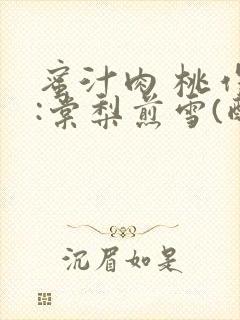 蜜汁肉桃
:棠梨煎雪(
沉眉如是